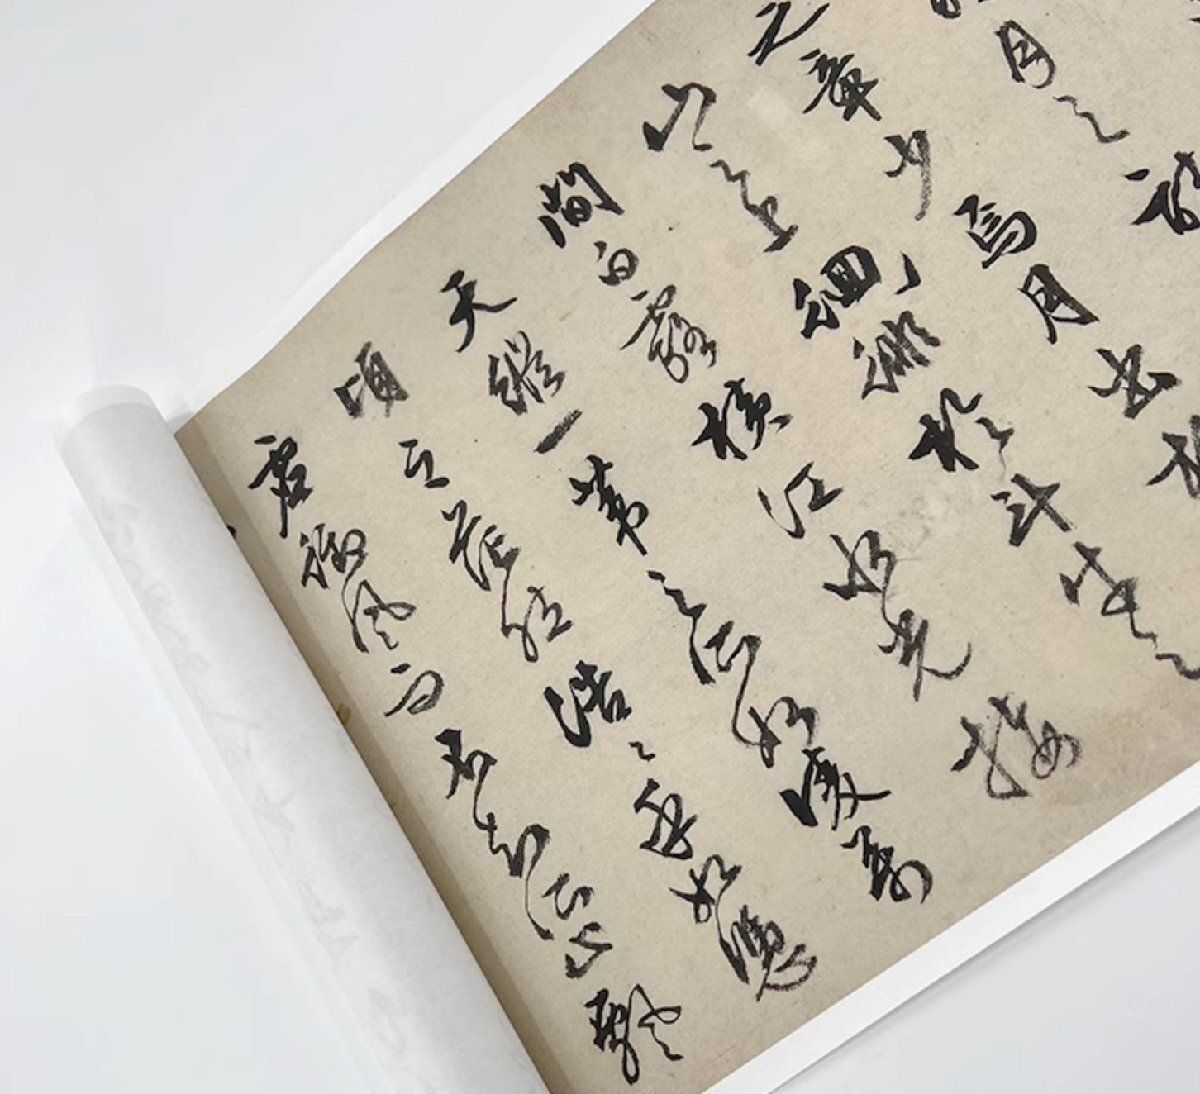 月之詩
之章少焉月出於
山之上徊徘於斗牛之
間白露橫江水光接
天縱一葦之所如凌萬
頃之茫然浩々乎如馮
虛御風而不知所止飄